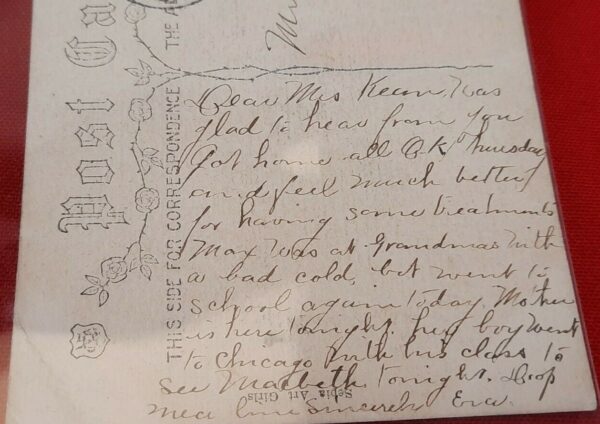 Post Ca
THIS SIDE FOR CORRESPONDENCE
THE A
Dear Mrs Keum, Was
glad to hear from you
Got home all O.K Thursday
and feel much better
for having some treatments
Max was at Grandmas with
a bad cold, but went to
school again today. Mother
is here tonight. her boy went
to Chicago with his class to
see Macbeth tonight. Drop
me a line Sincerely Eva.
Sepia Art Girls